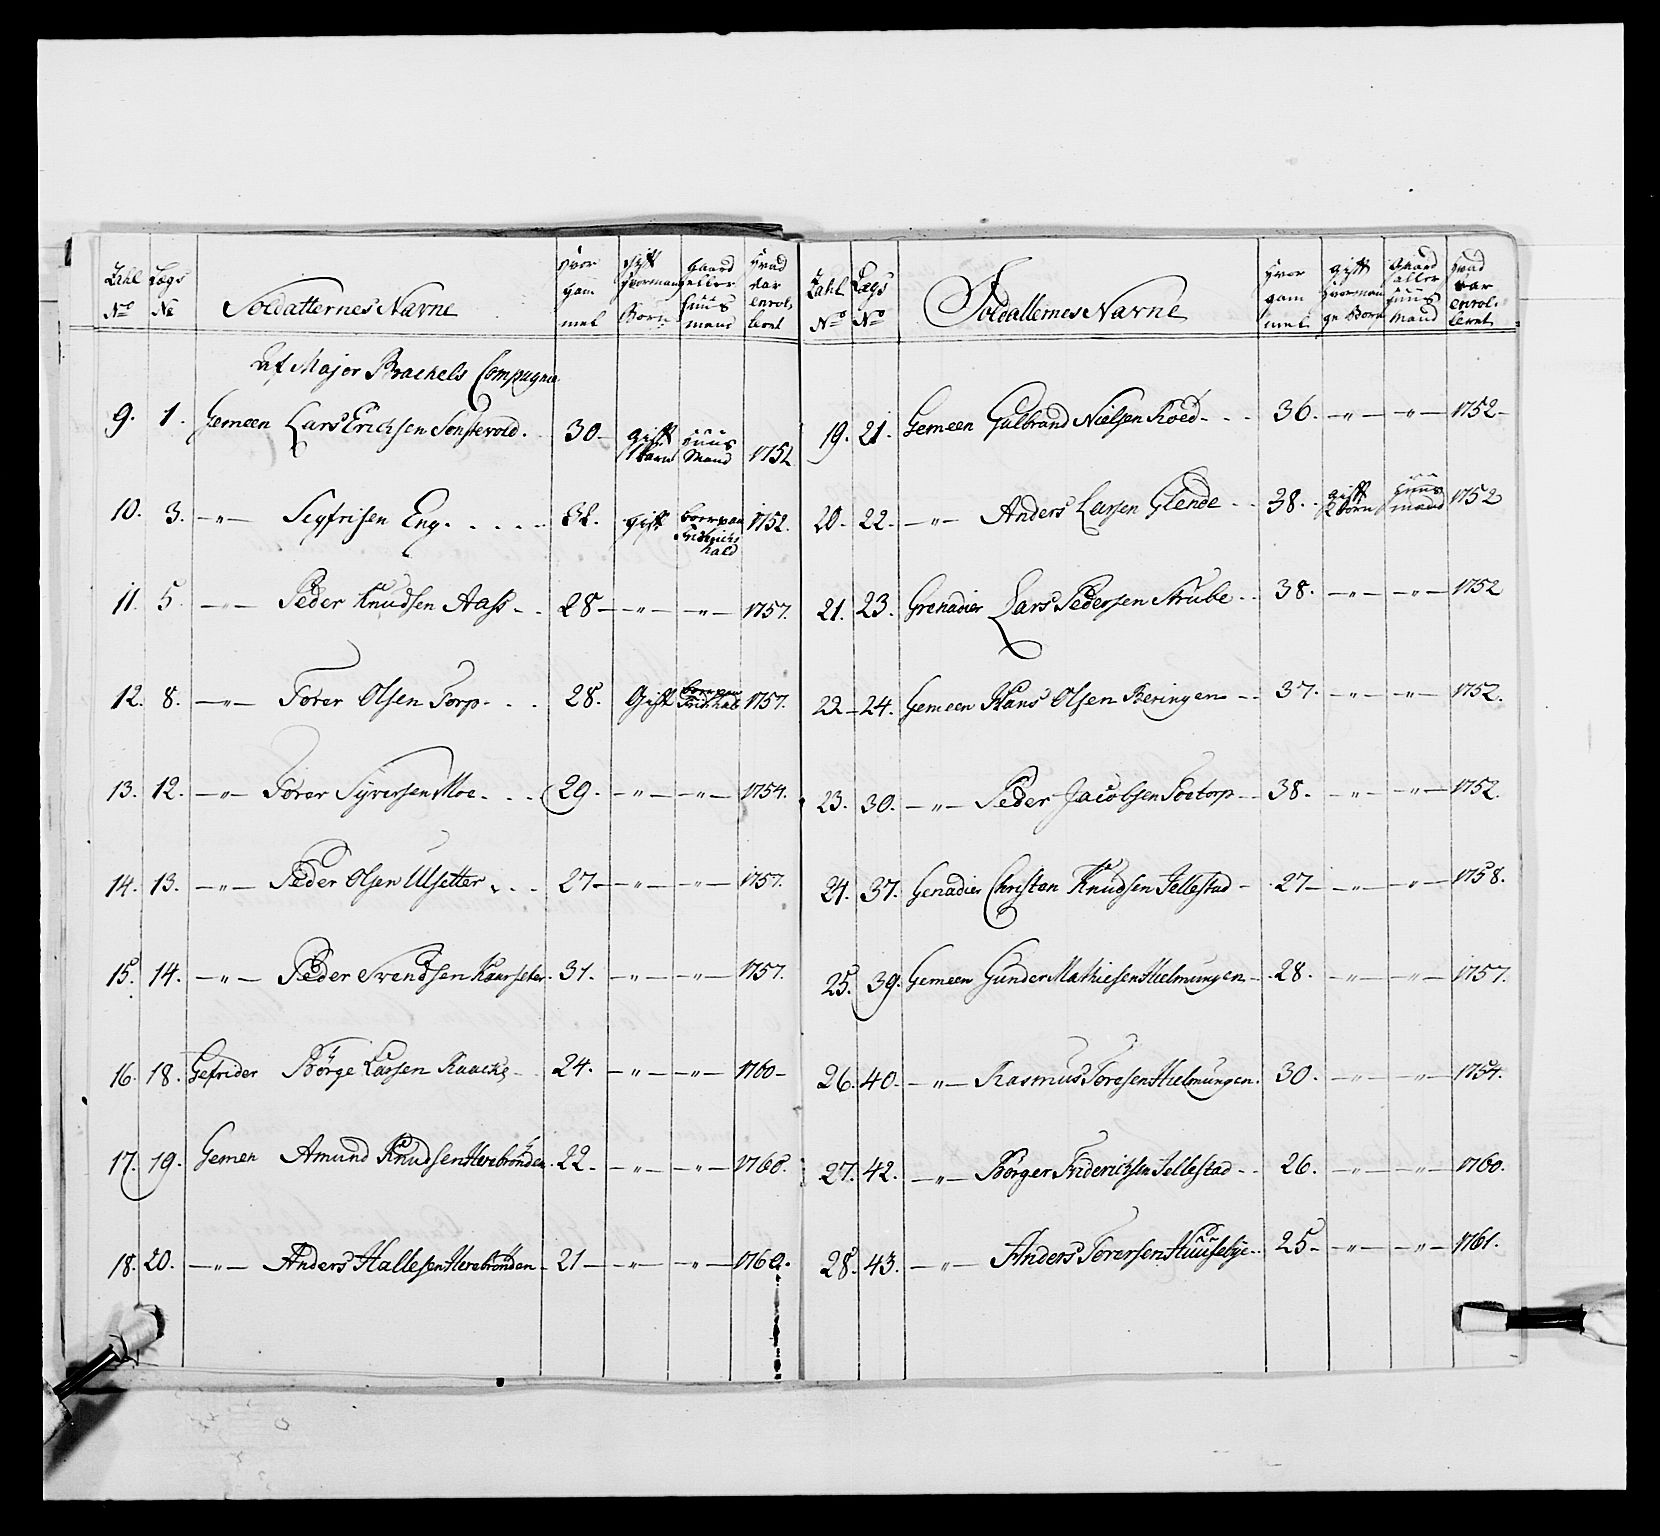 Zahl No Lægs No Soldatternes Navne hvor gam mel gift hvormang Børn gaard eller huus mand hvad aar enrol leret
af Major Brachels Compagnie
9. 1. Gemeen Lars Erichsen Sønstevold. 30. gift 1 barn huus Mand 1752
10. 3. —"— Segfrisen Eng. 32. gift boer paa Fridrichs hald 1752.
11. 5 —"— Peder Knudsen Aass 28 —"— —"— 1757.
12. 8. —"— Torer Olsen Torp. 28. Gift boer paa Fridhald 1757.
13. 12. —"— Torer Syversen Moe. 29. —"— —"— 1754.
14. 13. —"— Peder Olsen Ulsetter. 27 —"— —"— 1757.
15. 14. —"— Peder Svendsen Kaarseter. 31. —"— —"— 1757.
16. 18. Gefrider Börge Larsen Raacke 24. —"— —"— 1760
17. 19. Gemen Amund Knudsen Herrebrönden. 22. —"— —"— 1760.
18. 20. —"— Anders Hallesen Herrebrönden 21 —"— —"— 1760.
Zahl No Lægs No Soldatternes Navne hvor gam mel gift hvorman ge Børn Gaard eller Huus Mand hvad aar enrol leret
19. 21. Gemeen Gulbrand Nielsen Roed 36. —"— —"— 1752
20. 22. —"— Anders Larsen Glende 38. gift 2 börn huus mand 1752
21. 23. Grenadier Lars Pedersen Strube 38. —"— —"— 1752
22 24. Gemeen Hans Olsen Beringen 37. —"— —"— 1752.
23. 30. —"— Peder Jacobsen Toetorp 38. —"— —"— 1752.
24. 37. Genadier Christen Knudsen Jellestad 27 —"— —"— 1758.
25. 39. Gemeen Gunder Mathiesen Hielmungen 28. —"— —"— 1757.
26. 40. —"— Rasmus Toresen Hielmungen. 30. —"— —"— 1754.
27. 42. —"— Börger Friderichsen Jellestad 26. —"— —"— 1760.
28. 43. —"— Anders Torersen Huusebye 25. —"— —"— 1761.